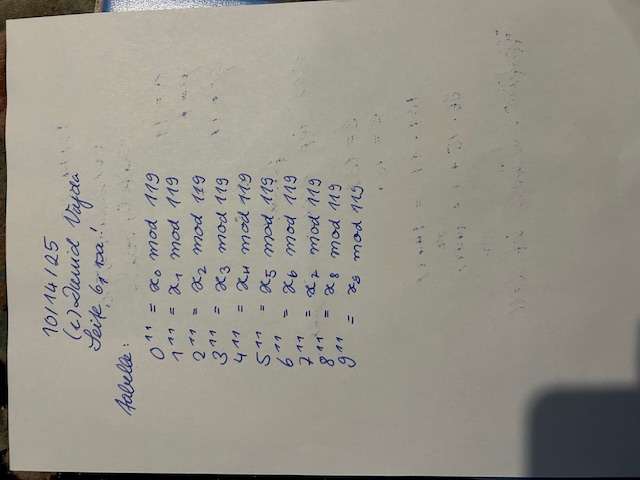 10/14/25
(c) David Vajda
Seite
Tabelle:
0¹¹ = x₀ mod 119
1¹¹ = x₁ mod 119
2¹¹ = x₂ mod 119
3¹¹ = x₃ mod 119
4¹¹ = x₄ mod 119
5¹¹ = x₅ mod 119
6¹¹ = x₆ mod 119
7¹¹ = x₇ mod 119
8¹¹ = x₈ mod 119
9¹¹ = x₉ mod 119